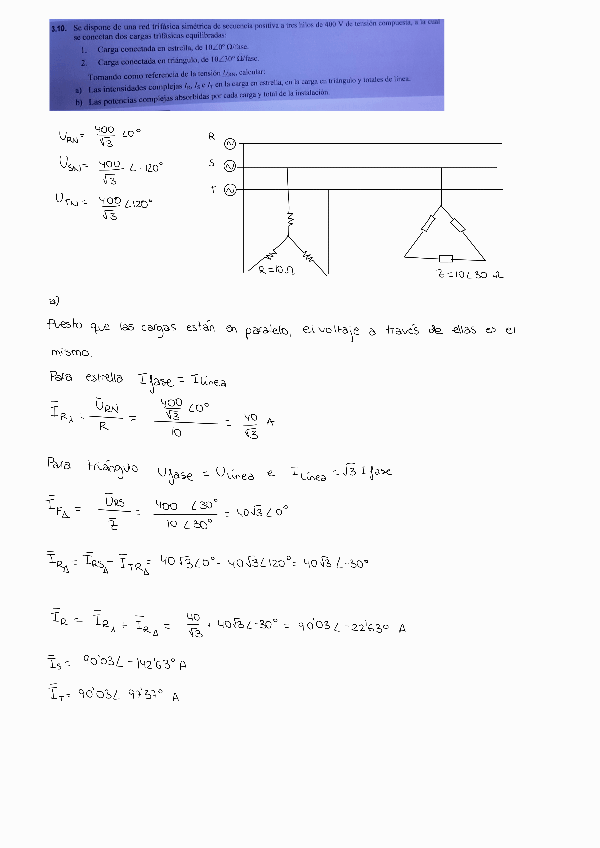 3.10. Se dispone de una red trifásica simétrica de secuencia positiva a tres hilos de 400 V de tensión compuesta, a la cual
se conectan dos cargas trifásicas equilibradas:
1. Carga conectada en estrella, de 10∠0° Ω/fase.
2. Carga conectada en triángulo, de 10∠30° Ω/fase.
Tomando como referencia de la tensión U_RN, calcular:
a) Las intensidades complejas I_R, I_S e I_T en la carga en estrella, en la carga en triángulo y totales de línea.
b) Las potencias complejas absorbidas por cada carga y total de la instalación.
U_RN = 400/√3 ∠0°
U_SN = 400/√3 ∠-120°
U_TN = 400/√3 ∠120°
R
S
T
R=10Ω
Z=10∠30 Ω
a)
Puesto que las cargas están en paralelo, el voltaje a través de ellas es el
mismo.
Para estrella I fase = I línea
I_Rλ = U_RN/R = 400/√3 ∠0° / 10 = 40/√3 A
Para triángulo U fase = U línea e I línea = √3 I fase
I_FΔ = U_RS/Z = 400 ∠30° / 10 ∠30° = 40√3∠0°
I_RΔ = I_RSΔ - I_TRΔ = 40√3∠0° - 40√3∠120° = 40√3 ∠-30°
I_R = I_Rλ + I_RΔ = 40/√3 + 40√3∠-30° = 90'03∠-22'63° A
I_S = 90'03∠-142'63° A
I_T = 90'03∠ 97'37° A